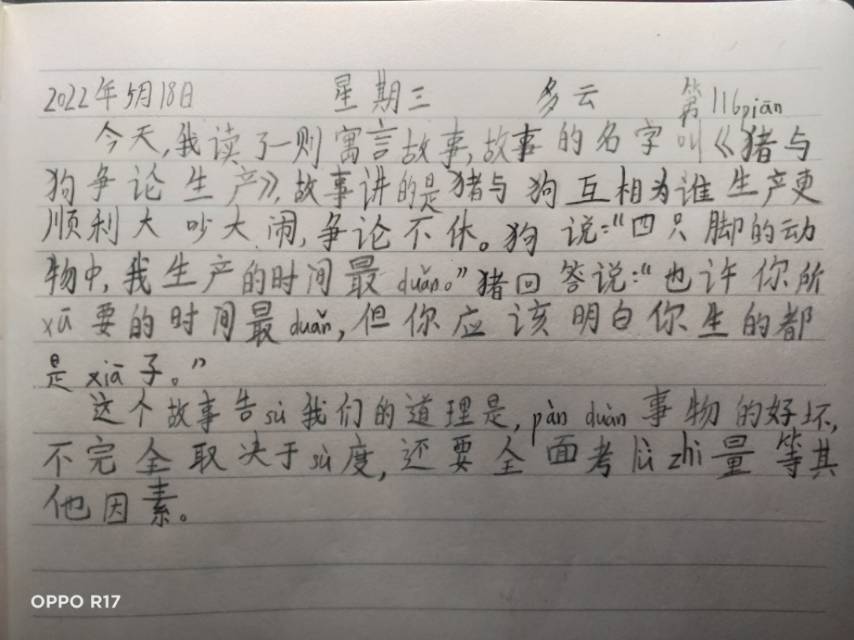 2022年5月18日 星期三 多云 第116piān
今天,我读了一则寓言故事,故事的名字叫《猪与
狗争论生产》,故事讲的是猪与狗互相为谁生产更
顺利大吵大闹,争论不休。狗说:“四只脚的动
物中,我生产的时间最duǎn。”猪回答说:“也许你所
xū要的时间最duǎn,但你应该明白你生的都
是xiā子。”
这个故事告sù我们的道理是,pàn duàn事物的好坏,
不完全取决于sù度,还要全面考lǜ zhì量等其
他因素。
OPPO R17